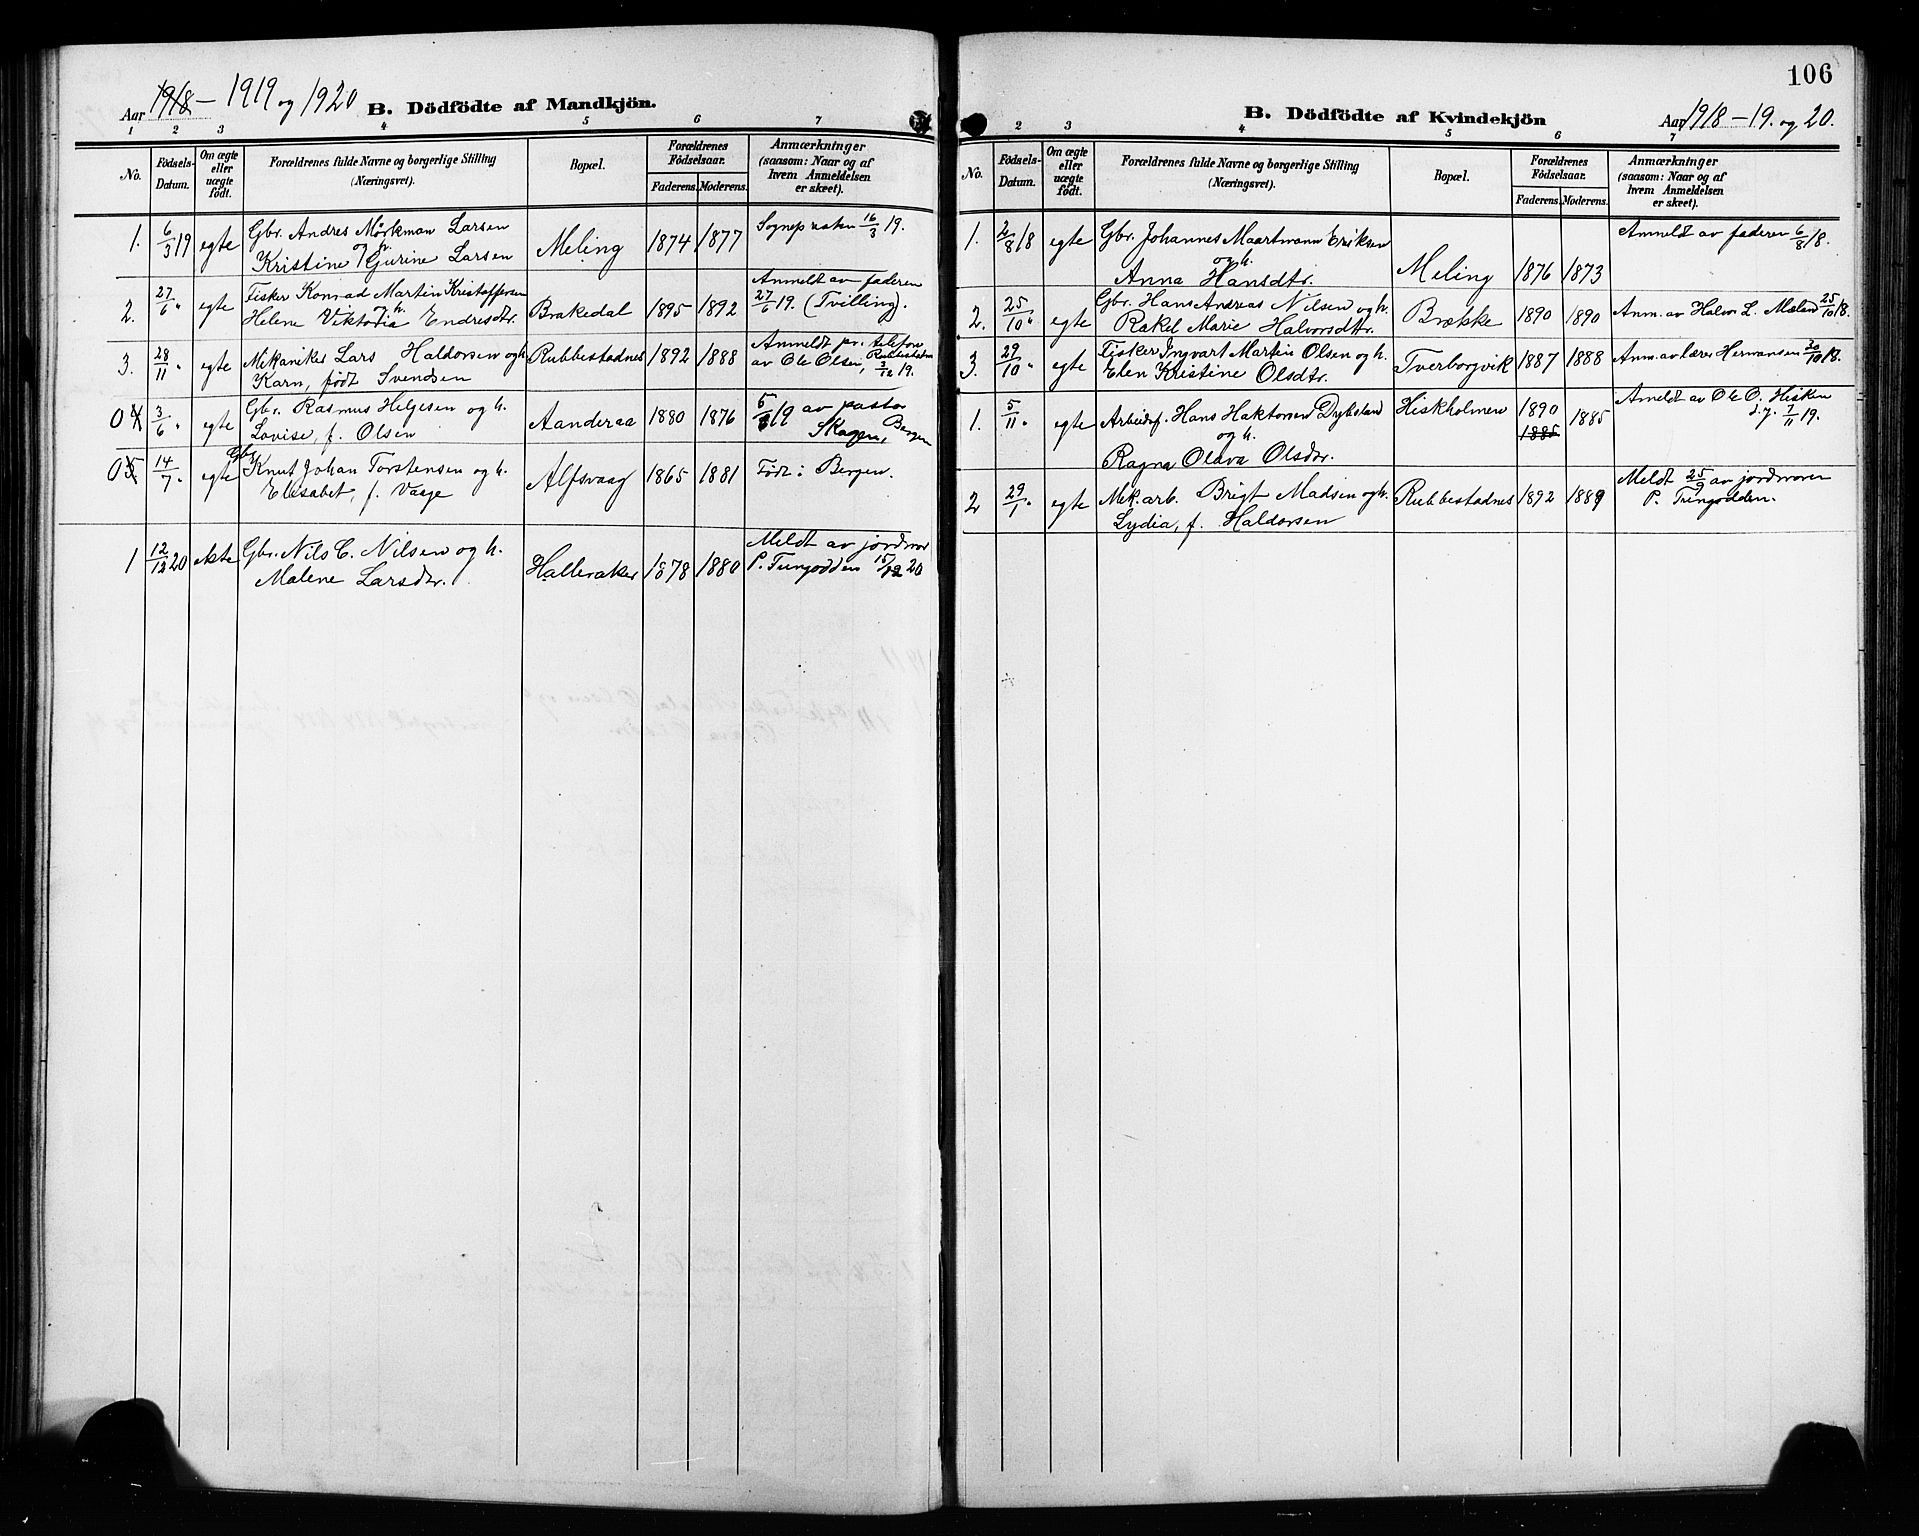 Aar 1918 - 1919 og 1920 B. Dödfödte af Mandkjön.
1 2 3 4 5 6 7
No. Födsels-Datum. Om ægte eller uægte födt. Forældrenes fulde Navne og borgerlige Stilling (Næringsvei). Bopæl. Forældrenes Födselsaar. Faderens. Moderens. Anmærkninger (saasom: Naar og af hvem Anmeldelsen er skeet).
1. 6/3 19 egte Gbr. Andres Mørkman Larsen og h. Meling 1874 1877 16/3 19.
Kristine Gurine Larsen
2. 27/6 " egte Fisker Konrad Martin Kristoffersen og h. Brakedal 1895 1892 Anmeldt av faderen
Helene Viktoria Endresdtr. 27/6 19. (Tvilling).
3. 28/11 " egte Mekaniker Lars Haldorsen og h. Rubbestadnes 1892 1888 Anmeldt pr. telefon
Karn, født Svendsen av Ole Olsen, Rubbestadn 3/12 19.
04 3/6 " egte Gbr. Rasmus Helgesen og h. Aanderaa 1880 1876 19 av pastor
Lovise, f. Olsen Skagen, Bergen
05 14/7 " egte Gbr. Knut Johan Torstensen og h. Alfsvaag 1865 1881 Født i Bergen.
Elisabet, f. Vage
1 12/12 20 ekte Gbr. Nils C. Nilsen og h. Halleraker 1878 1880 Meldt av jordmor
Malene Larsdr. P. Tungodden 15/12 20
106
B. Dödfödte af Kvindekjön Aar 1918 - 19. og 20.
2 3 4 5 6 7
No. Födsels-Datum. Om ægte eller uægte födt. Forældrenes fulde Navne og borgerlige Stilling (Næringsvei). Bopæl. Forældrenes Födselsaar. Faderens. Moderens. Anmærkninger (saasom: Naar og af hvem Anmeldelsen er skeet).
1. 2/8 18 egte Gbr. Johannes Maartmann Eriksen og h. Anmeldt av faderen 6/8 18.
Anna Hansdtr. Meling 1876 1873
2. 25/10 " egte Gbr. Hans Andreas Nilsen og h. Brække 1890 1890 Anm. av Halvor L. Mæland 25/10 18.
Rakel Marie Halvorsdtr.
3. 29/10 " egte Fisker Ingvart Martin Olsen og h. Tverborgvik 1887 1888 Anm. av lærer Hermansen 30/10 18.
Elen Kristine Olsdtr.
1. 5/11 " egte Arbeidsf. Hans Haktorsen Dykeland og h. Hiskholmen 1890 1885 1885 Ameldt av Ole O. Hisken
Ragna Olava Olsdr. 7/11 19.
2 29/1 " egte Mek. arb. Brigt Madsen og h. Rubbestadnes 1892 1889 Meldt 25/9 av jordmoren
Lydia, f. Haldorsen P. Tungodden.